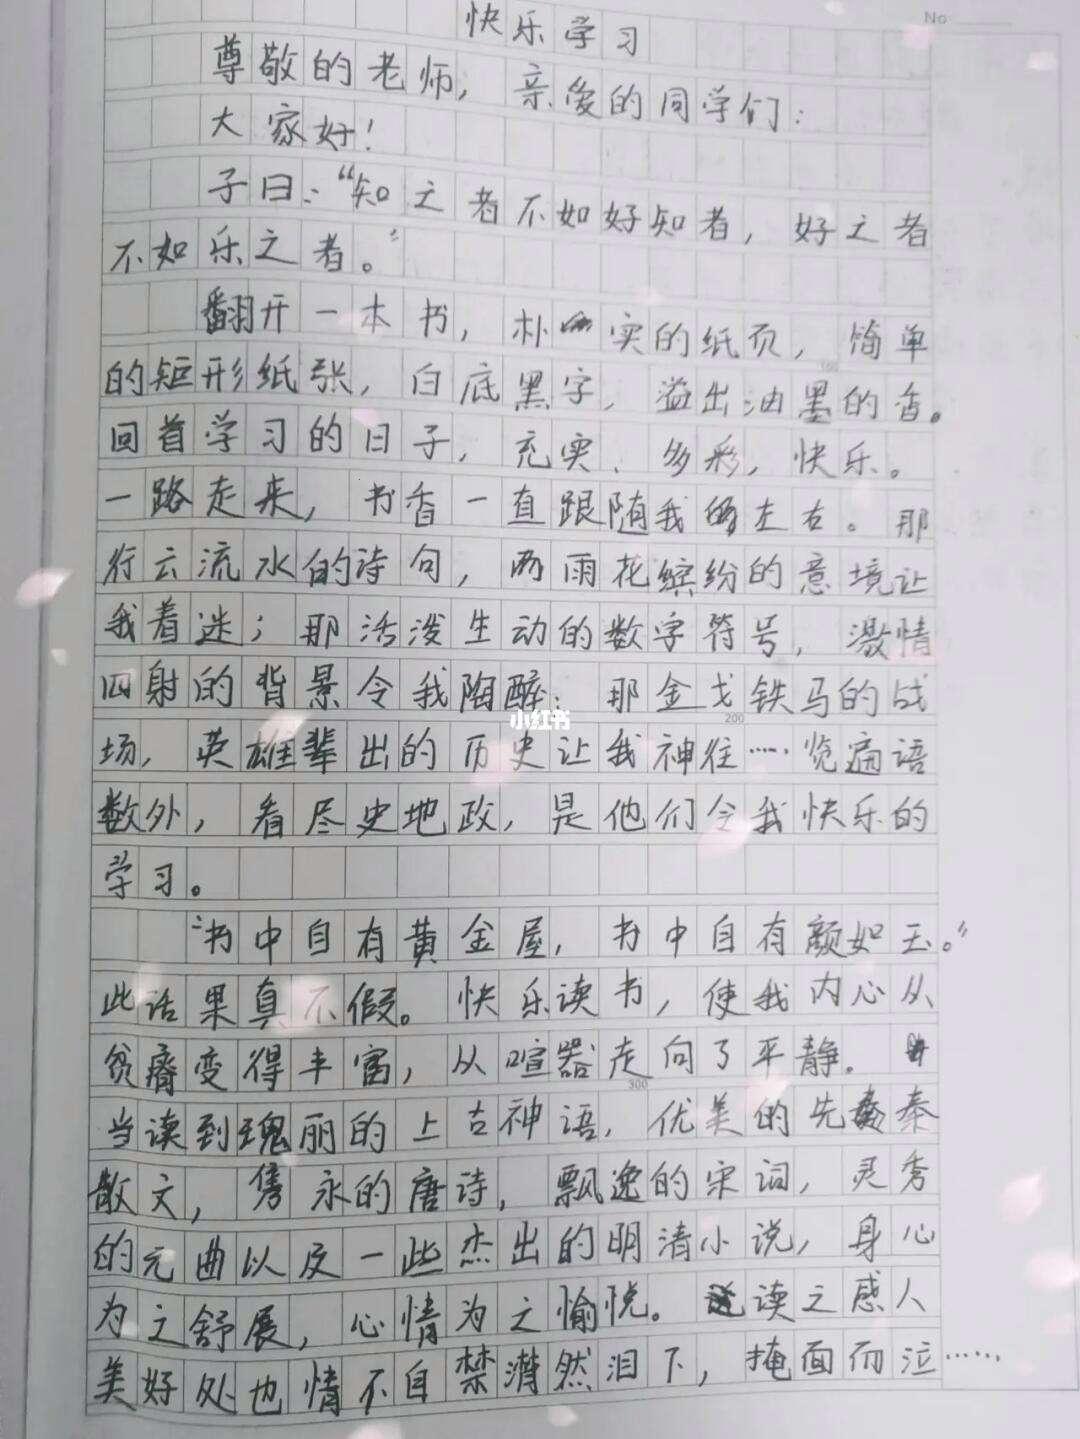 No
快乐学习
尊敬的老师，亲爱的同学们：
大家好！
子曰：“知之者不如好知者，好之者
不如乐之者。”
翻开一本书，朴实的纸页，简单
的矩形纸张，白底黑字，溢出油墨的香。
100
回首学习的日子，充实、多彩，快乐。
一路走来，书香一直跟随我左右。那
行云流水的诗句，两雨花缤纷的意境让
我着迷；那活泼生动的数字符号，激情
四射的背景令我陶醉；那金戈铁马的战
200
小红书
场，英雄辈出的历史让我神往……览遍语
数外，看尽史地政，是他们令我快乐的
学习。
“书中自有黄金屋，书中自有颜如玉。”
此话果真不假。快乐读书，使我内心从
贫瘠变得丰富，从喧嚣走向了平静。
300
当读到瑰丽的上古神语，优美的先秦
散文，隽永的唐诗，飘逸的宋词，灵秀
的元曲以及一些杰出的明清小说，身心
为之舒展，心情为之愉悦。读之感人
美好处也情不自禁潸然泪下，掩面而泣……